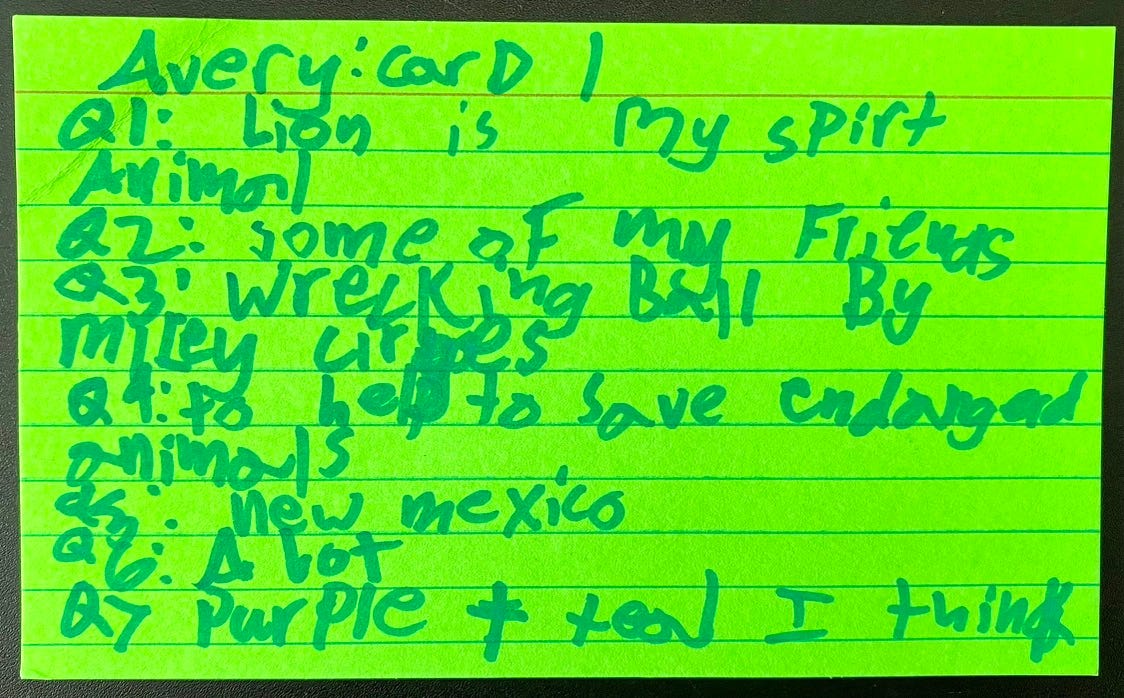 Avery: CarD 1
Q1: Lion is my spirt
Animal
Q2: some of my Friends
Q3: Wrecking Ball By
miley
Q4: to help to save endangerd
animals
Q5: new mexico
Q6: A lot
Q7 Purple + teal I think